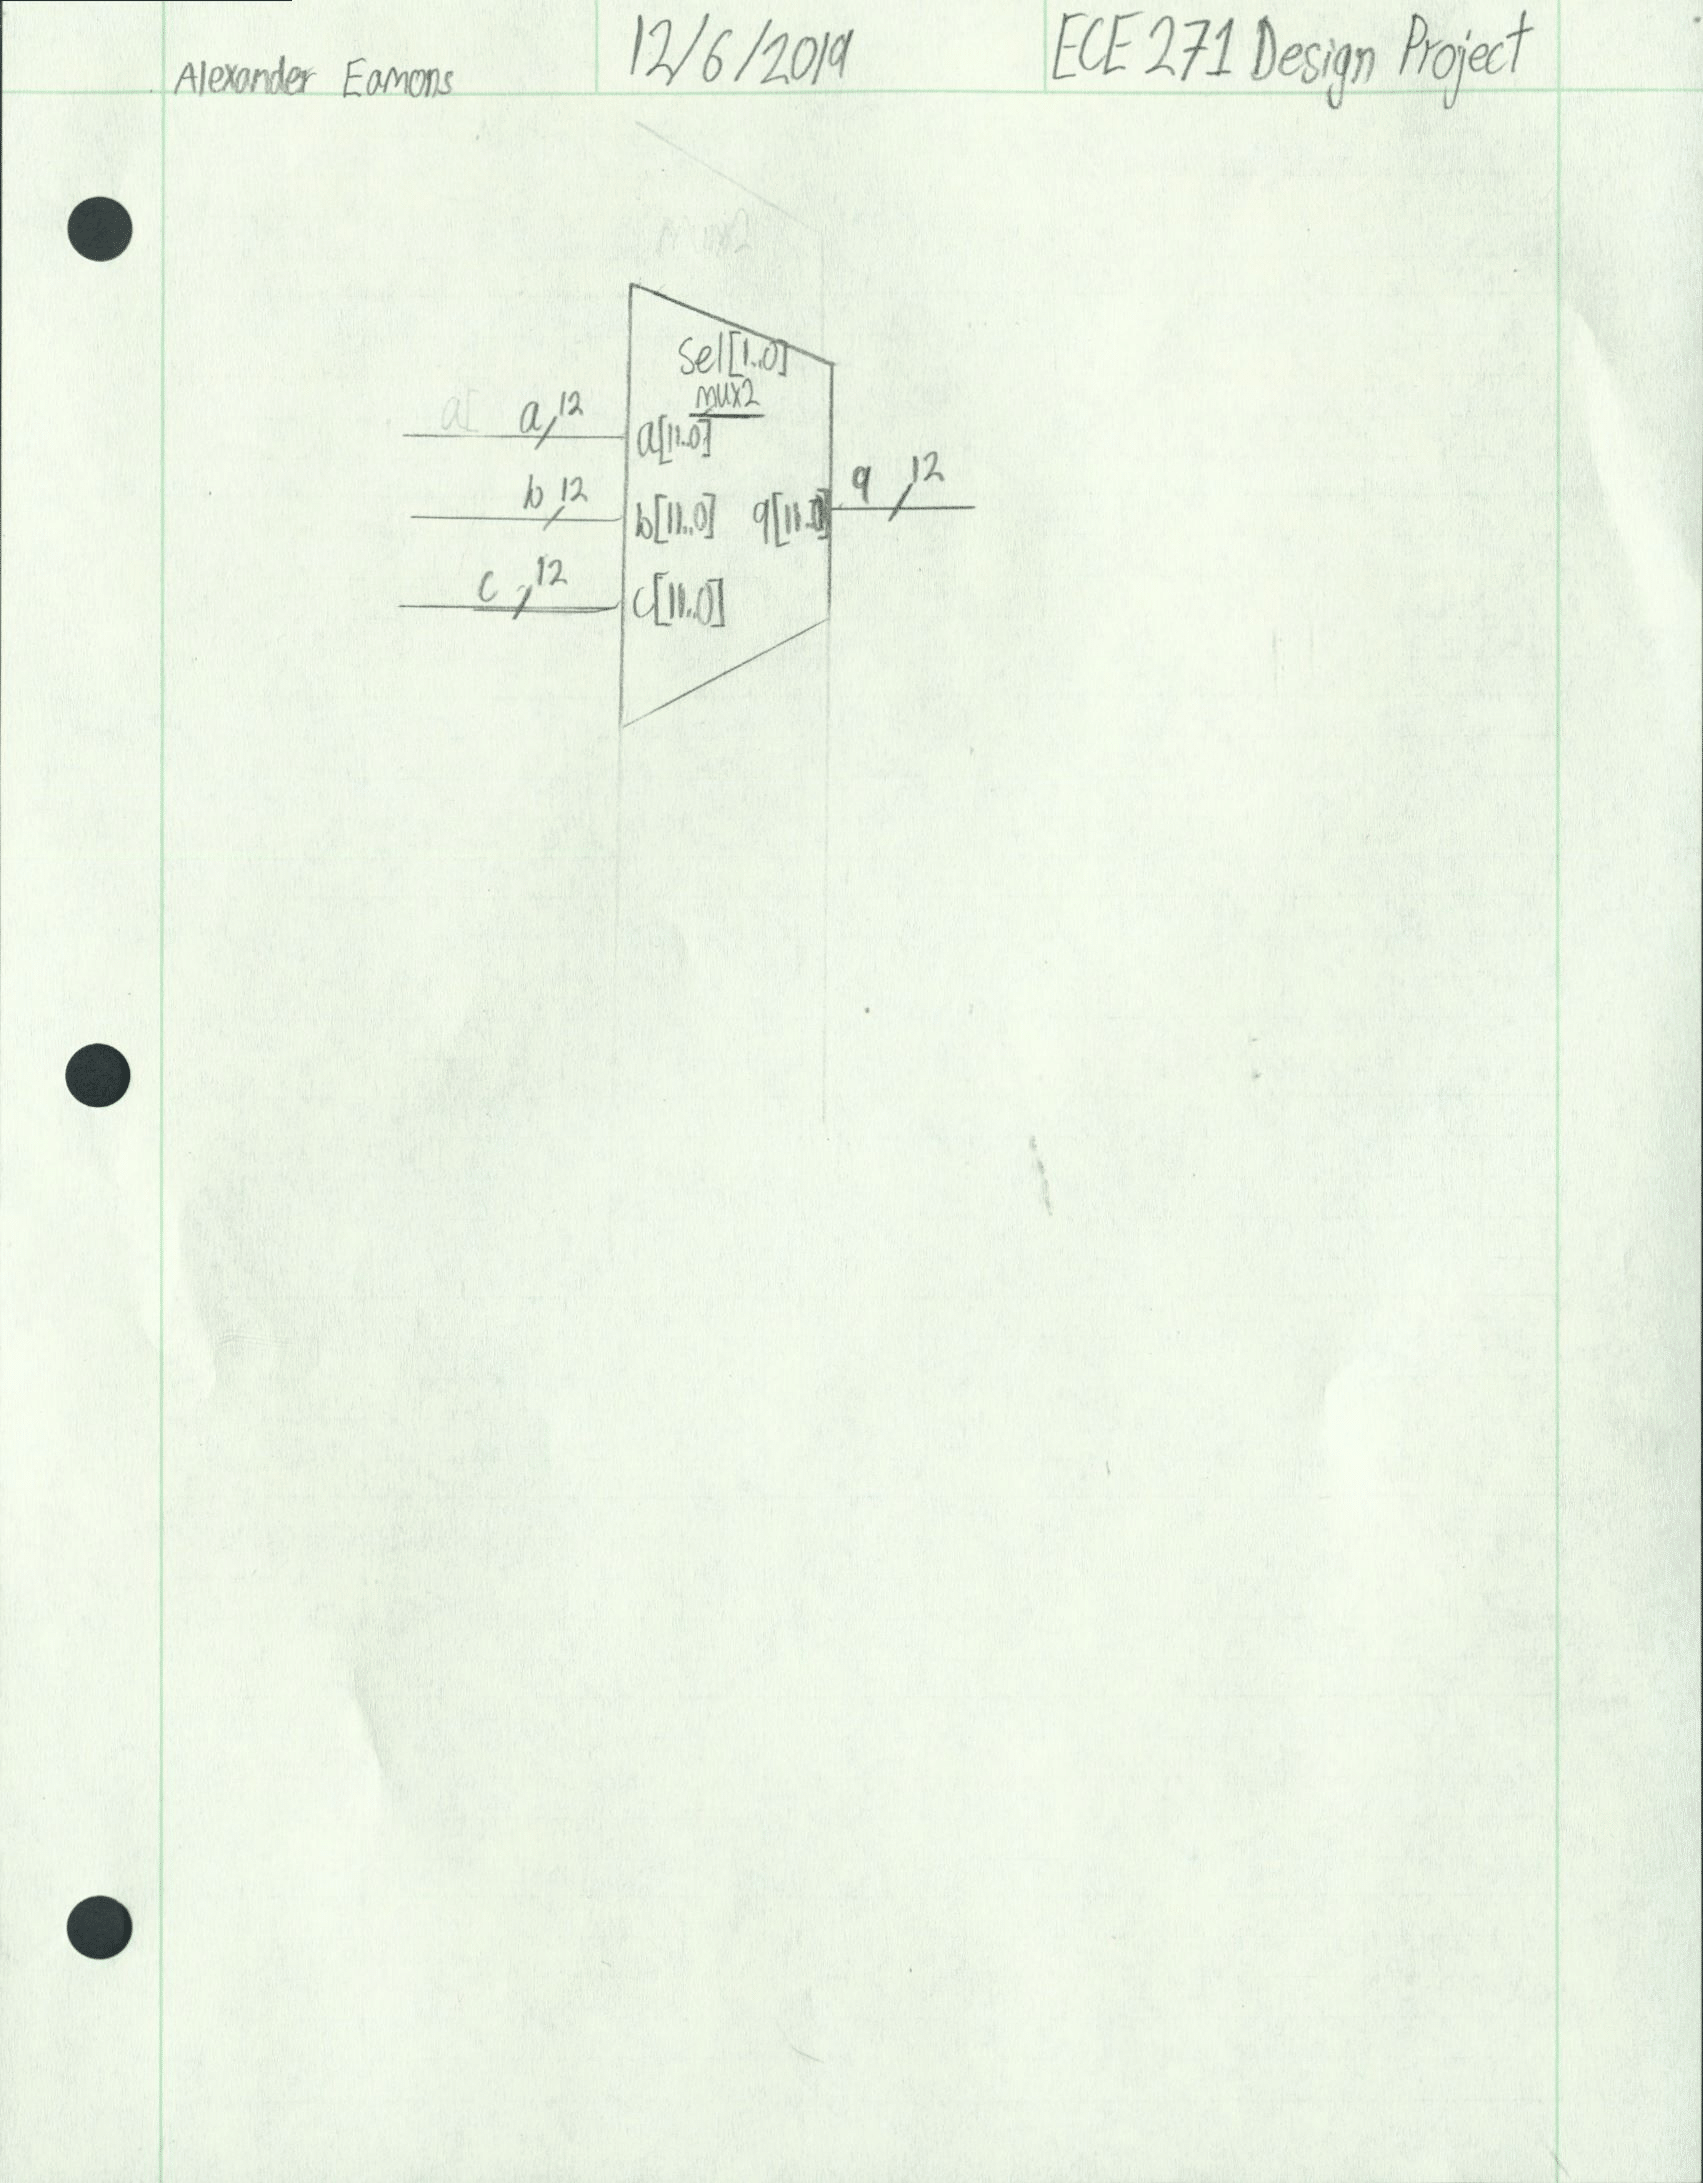 Alexander Eamons 12/6/2019 ECE 271 Design Project
mux2
Sel[1..0]
mux2
a[ a 12
a[11..0]
b 12
b[11..0]
q[11..0]
q 12
c 12
c[11..0]